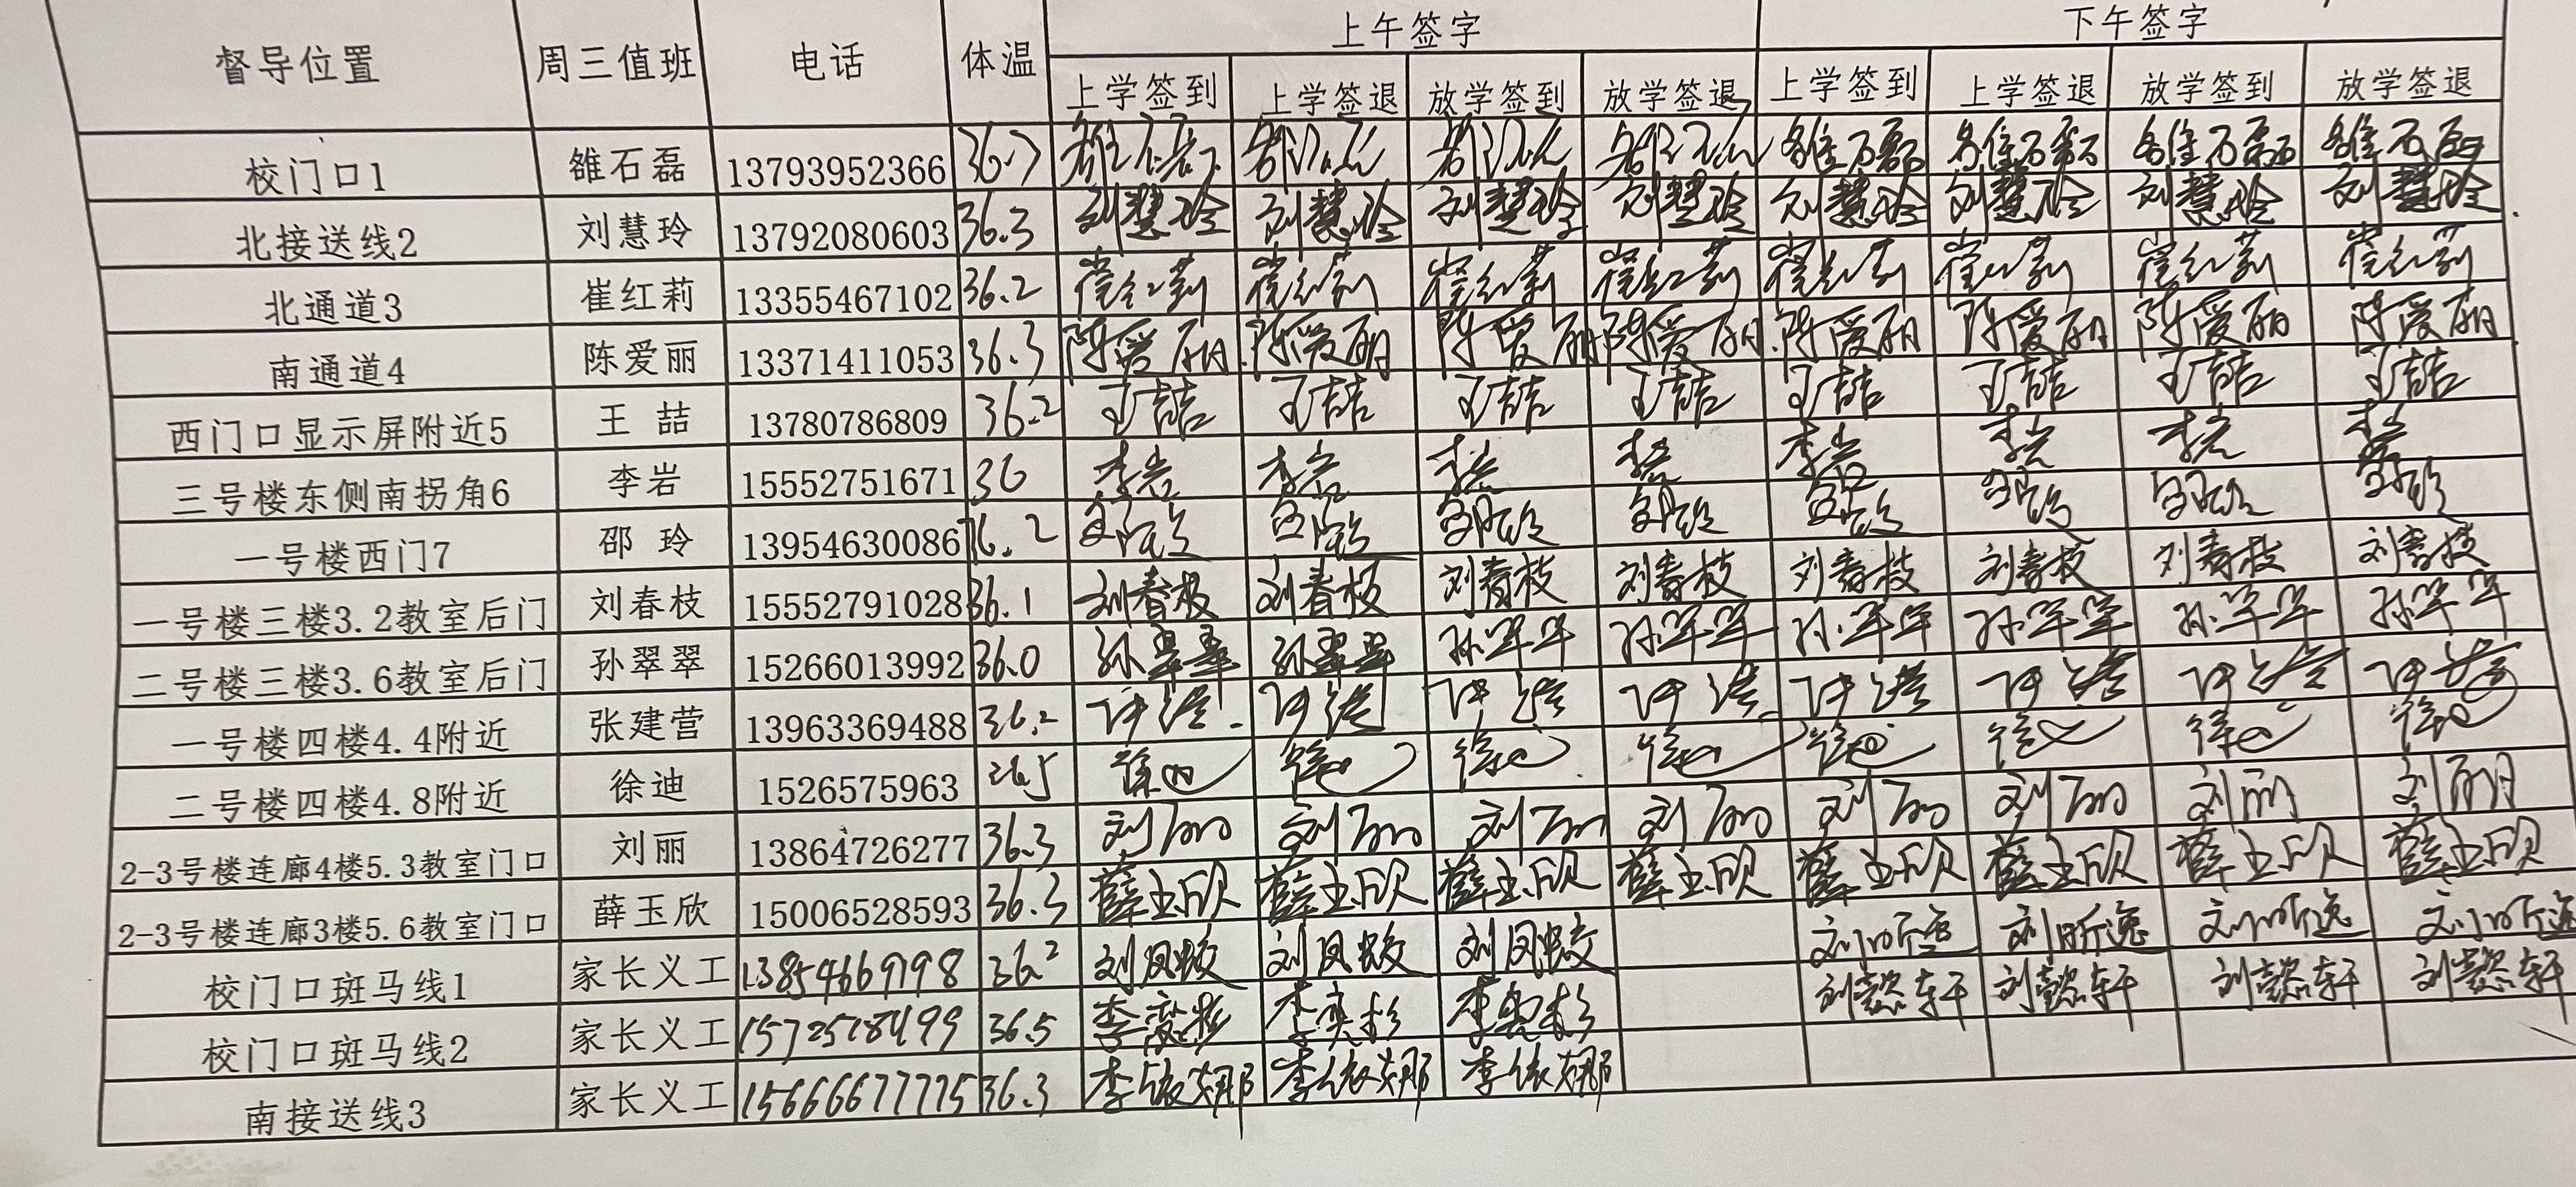 督导位置 周三值班 电话 体温 上午签字 下午签字
上学签到 上学签退 放学签到 放学签退 上学签到 上学签退 放学签到 放学签退
校门口1 雒石磊 13793952366 36.7 雒石磊 雒石磊 雒石磊 雒石磊
北接送线2 刘慧玲 13792080603 36.3 刘慧玲 刘慧玲 刘慧玲 刘慧玲 刘慧玲 刘慧玲 刘慧玲 刘慧玲
北通道3 崔红莉 13355467102 36.2 崔红莉 崔红莉 崔红莉 崔红莉 崔红莉 崔红莉 崔红莉 崔红莉
南通道4 陈爱丽 13371411053 36.3 陈爱丽 陈爱丽 陈爱丽 陈爱丽 陈爱丽 陈爱丽 陈爱丽 陈爱丽
西门口显示屏附近5 王 喆 13780786809 36.2 王喆 王喆 王喆 王喆 王喆 王喆 王喆 王喆
三号楼东侧南拐角6 李岩 15552751671 36 李岩 李岩 李岩 李岩 李岩 李岩 李岩 李岩
一号楼西门7 邵 玲 13954630086 36.2 邵玲 邵玲 邵玲 邵玲 邵玲 邵玲 邵玲 邵玲
一号楼三楼3.2教室后门 刘春枝 15552791028 36.1 刘春枝 刘春枝 刘春枝 刘春枝 刘春枝 刘春枝 刘春枝 刘春枝
二号楼三楼3.6教室后门 孙翠翠 15266013992 36.0 孙翠翠 孙翠翠 孙翠翠 孙翠翠 孙翠翠 孙翠翠 孙翠翠 孙翠翠
一号楼四楼4.4附近 张建营 13963369488 36.2
二号楼四楼4.8附近 徐迪 1526575963 36.5 徐迪 徐迪 徐迪 徐迪 徐迪 徐迪 徐迪 徐迪
2-3号楼连廊4楼5.3教室门口 刘丽 13864726277 36.3 刘丽 刘丽 刘丽 刘丽 刘丽 刘丽 刘丽 刘丽
2-3号楼连廊3楼5.6教室门口 薛玉欣 15006528593 36.3 薛玉欣 薛玉欣 薛玉欣 薛玉欣 薛玉欣 薛玉欣 薛玉欣 薛玉欣
校门口斑马线1 家长义工 13854669198 36.2 刘凤蛟 刘凤蛟 刘凤蛟 刘昕逸 刘昕逸 刘昕逸 刘昕逸
校门口斑马线2 家长义工 15725278499 36.5 刘懿轩 刘懿轩 刘懿轩 刘懿轩
南接送线3 家长义工 15666677775 36.3 李依娜 李依娜 李依娜